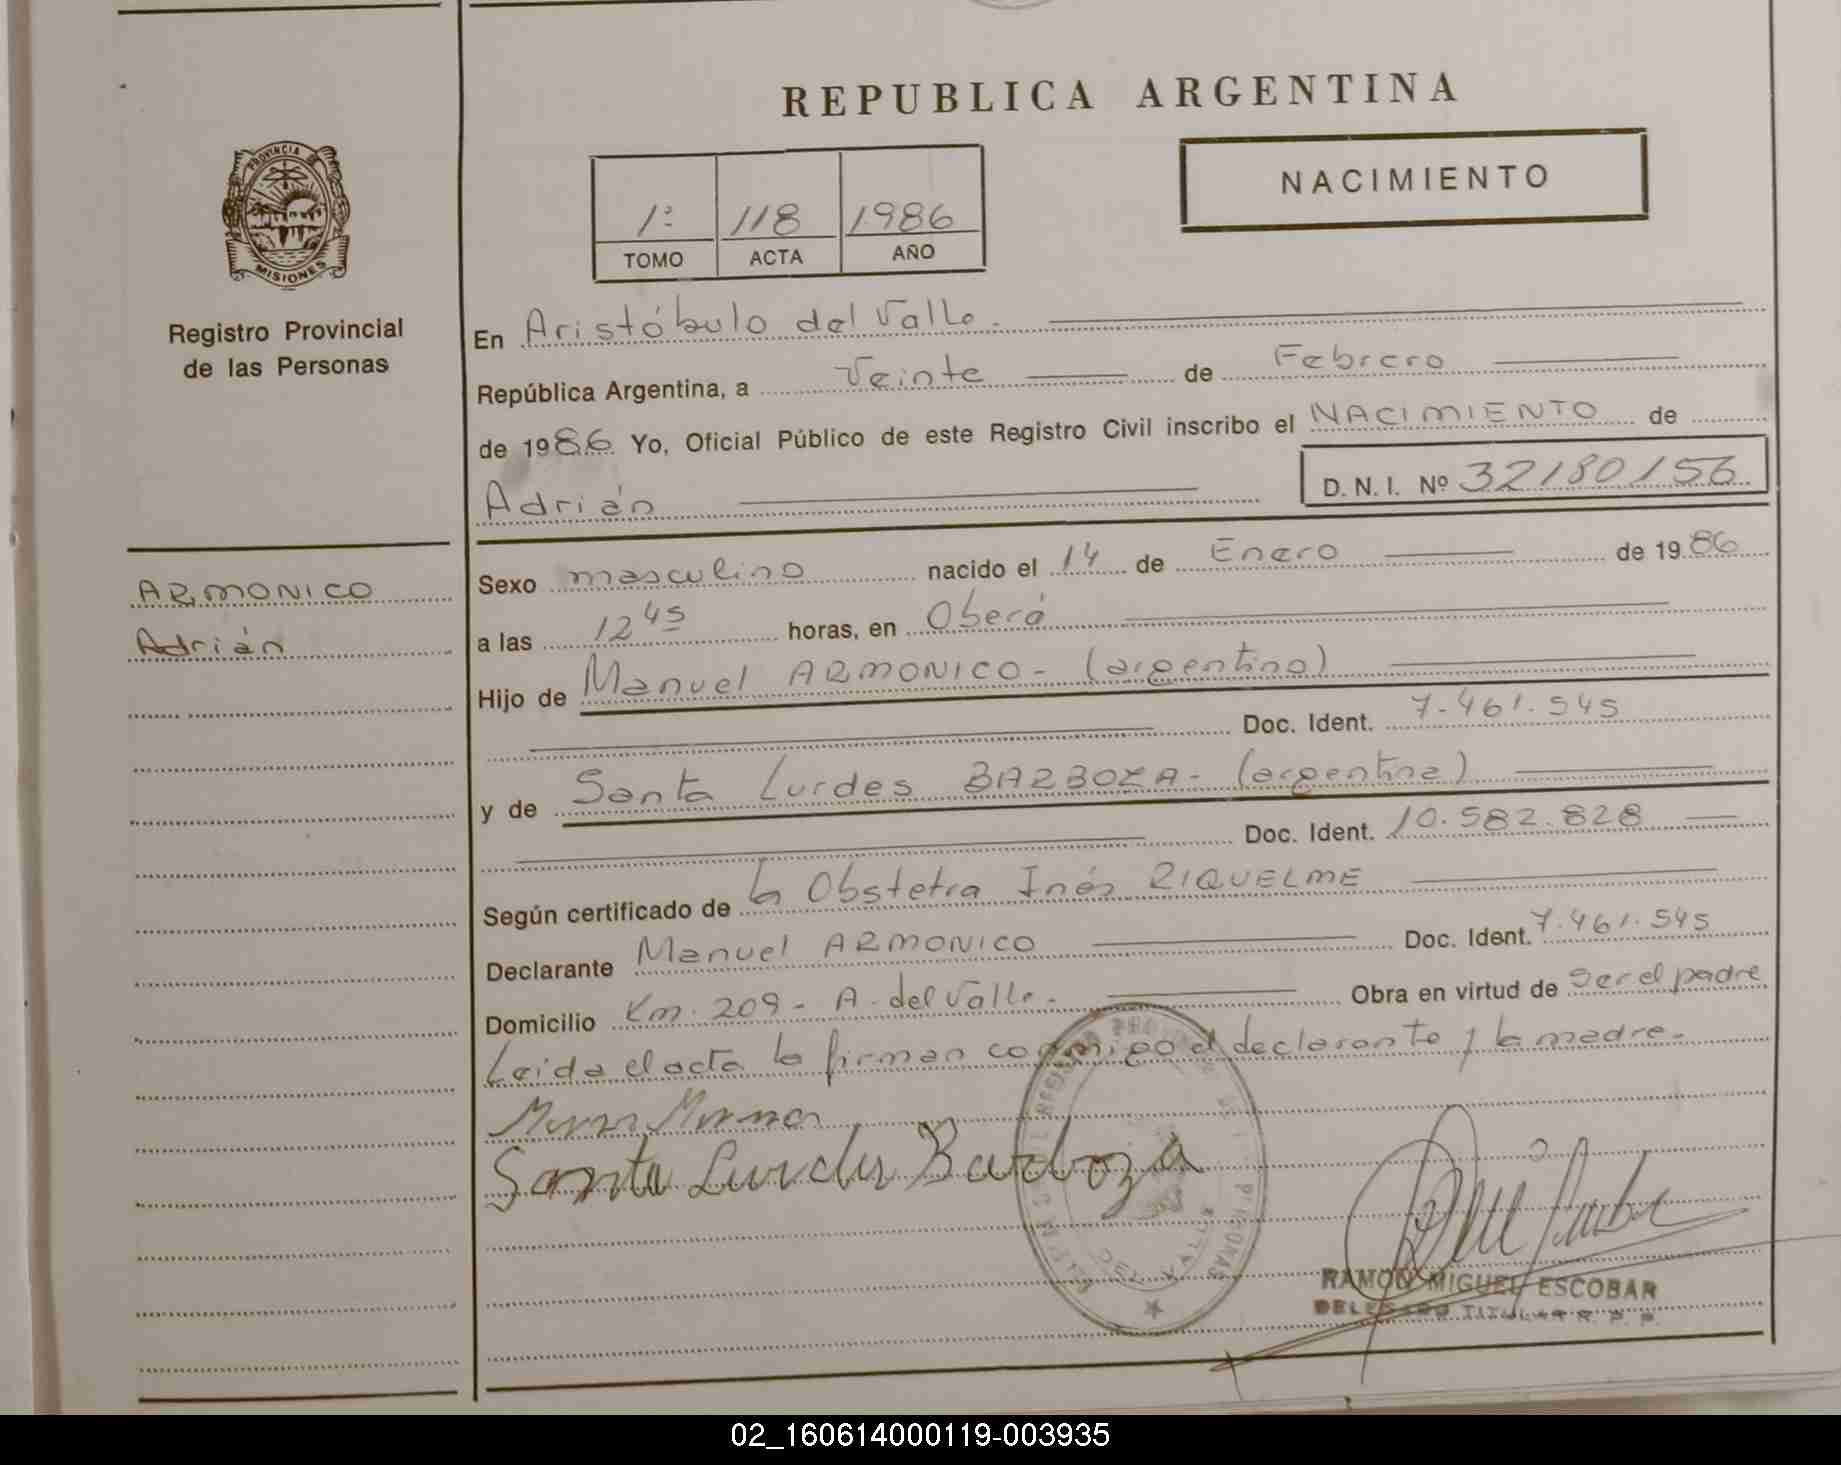 REPUBLICA ARGENTINA
NACIMIENTO
PROVINCIA DE
MISIONES
Registro Provincial
de las Personas
1º 118 1986
TOMO ACTA AÑO
En Aristóbulo del Valle.
República Argentina, a Veinte de Febrero
de 1986 Yo, Oficial Público de este Registro Civil inscribo el NACIMIENTO de
Adrián D. N. I. Nº 32180156
ARMONICO
Adrián
Sexo masculino nacido el 14 de Enero de 1986
a las 12 45 horas, en Oberá
Hijo de Manuel ARMONICO - (argentino)
Doc. Ident. 7.461.545
y de Santa Lurdes BARBOZA - (argentina)
Doc. Ident. 10.582.828
Según certificado de la Obstetra Inés RIQUELME
Declarante Manuel ARMONICO Doc. Ident. 7.461.545
Domicilio Km. 209 - A. del Valle. Obra en virtud de ser el padre
Leida el acta la firman conmigo el declarante y la madre.
Santa Lurdes Barboza
DEL VALLE
RAMON MIGUEL ESCOBAR
DELEGADO TITULAR R. P. P.
02_160614000119-003935